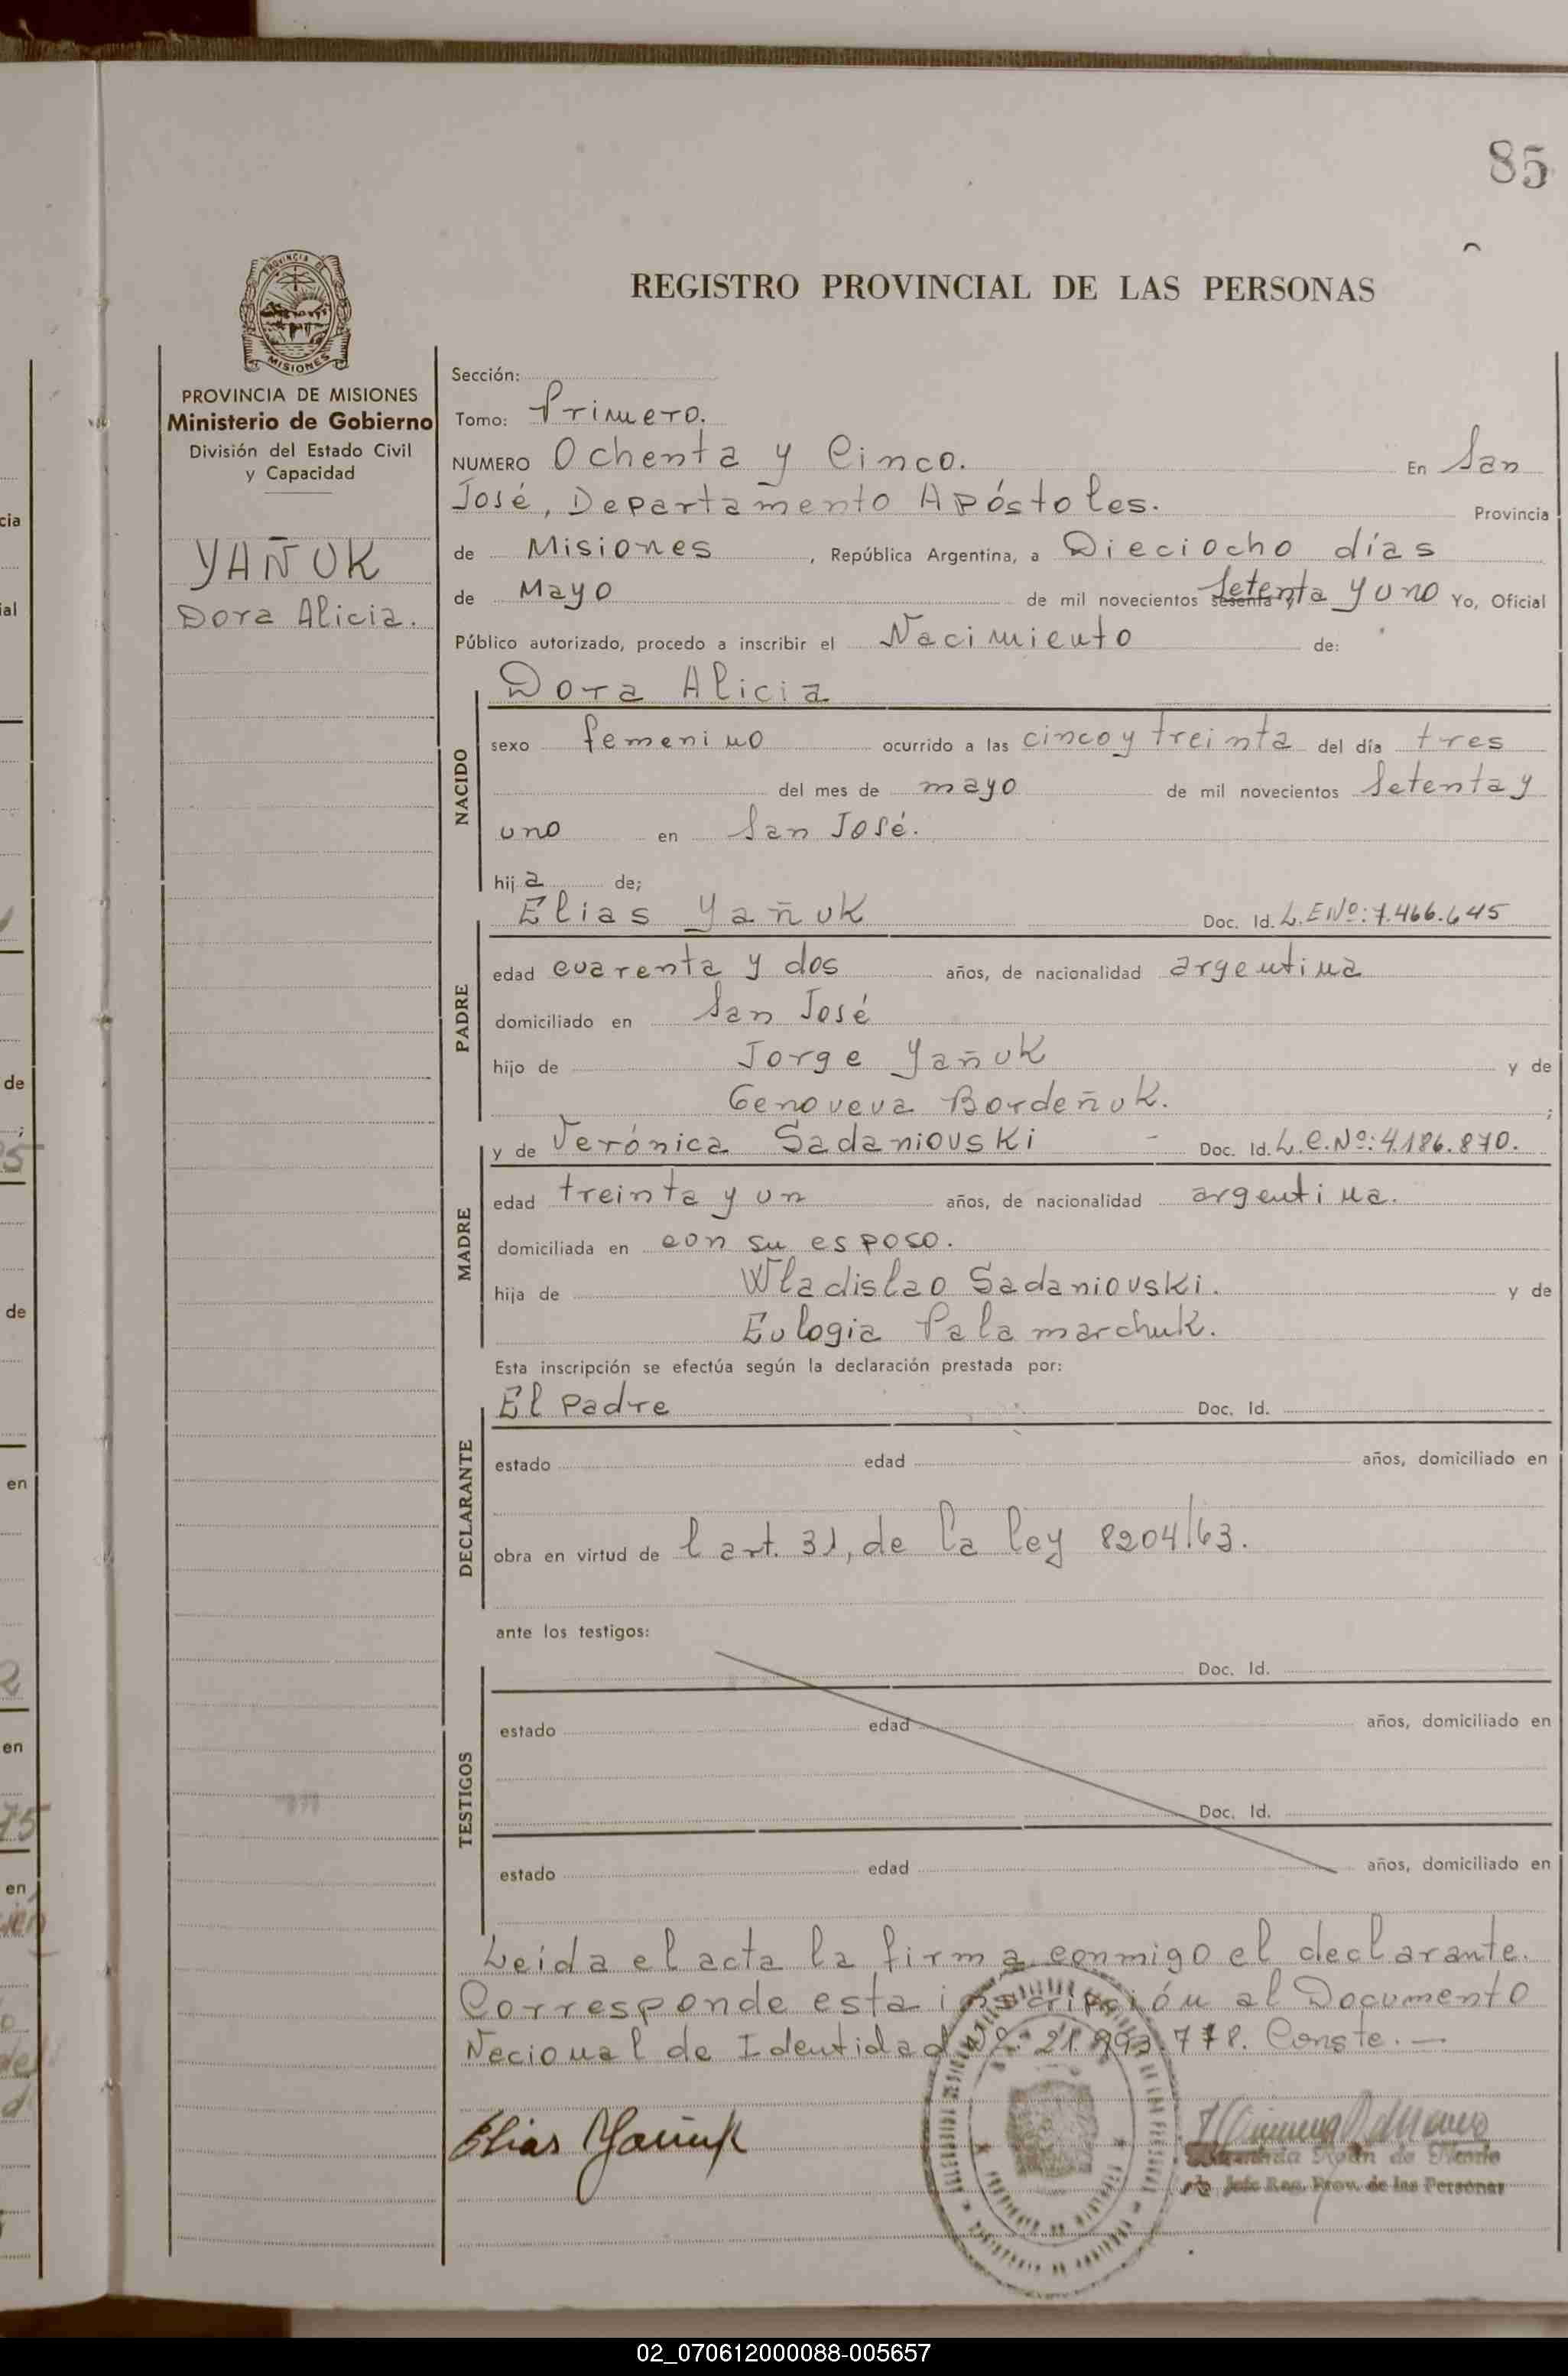 85
REGISTRO PROVINCIAL DE LAS PERSONAS
PROVINCIA DE MISIONES
Ministerio de Gobierno
División del Estado Civil
y Capacidad
YAÑUK
Dora Alicia.
Sección:
Tomo: Primero.
NUMERO Ochenta y Cinco. En San
José, Departamento Apóstoles. Provincia
de Misiones, República Argentina, a Dieciocho días
de Mayo de mil novecientos setenta y uno Yo, Oficial
Público autorizado, procedo a inscribir el Nacimiento de:
Dora Alicia
NACIDO
sexo femenino ocurrido a las cinco y treinta del día tres
del mes de mayo de mil novecientos setenta y
uno en San José.
hija de;
Elias Yañuk Doc. Id. L.E Nº: 7.466.645
PADRE
edad cuarenta y dos años, de nacionalidad argentina
domiciliado en San José
hijo de Jorge Yañuk y de
Genoveva Bordeñuk. ;
y de Verónica Sadaniovski - Doc. Id. L.C.Nº: 4.186.870.
MADRE
edad treinta y un años, de nacionalidad argentina.
domiciliada en con su esposo.
hija de Wladislao Sadaniovski. y de
Eulogia Palamarchuk.
Esta inscripción se efectúa según la declaración prestada por:
El Padre Doc. Id.
DECLARANTE
estado edad años, domiciliado en
obra en virtud de l art. 31, de la ley 8204/63.
ante los testigos:
Doc. Id.
TESTIGOS
estado edad años, domiciliado en
Doc. Id.
estado edad años, domiciliado en
Leída el acta la firma conmigo el declarante.
Corresponde esta inscripción al Documento
Nacional de Identidad Nº: Conste.—
Elias Yañuk
Jefe Reg. Prov. de las Personas
02_070612000088-005657